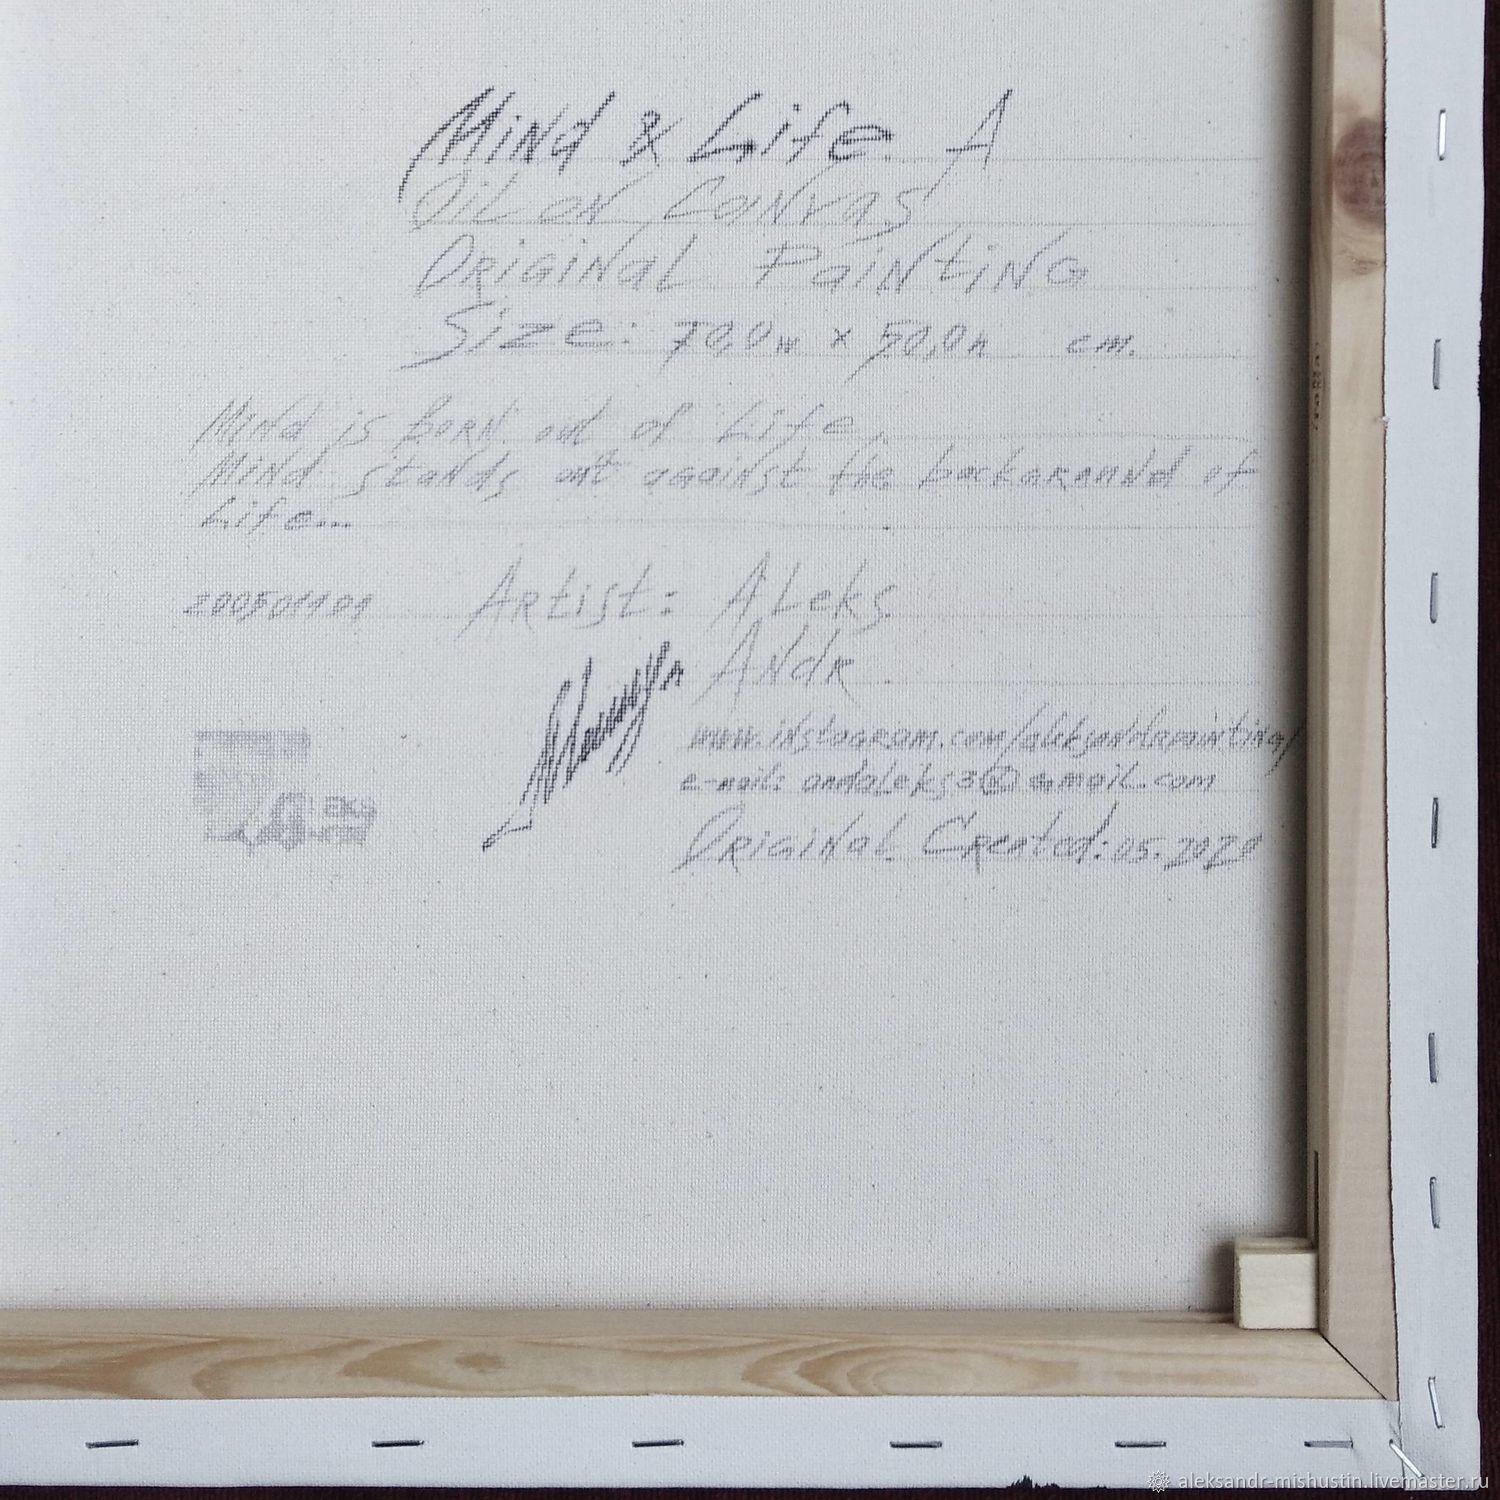 Mind & Life. A
Oil on Canvas
Original Painting
Size: 70,0w x 50,0h cm.
Mind is born out of Life.
Mind stands out against the background of
Life...
200501101 Artist: Aleks
Andr
www.instagram.com/aleksandrpainting/
e-mail: andaleks3@gmail.com
Original Created: 05.2020
aleksandr-mishustin.livemaster.ru